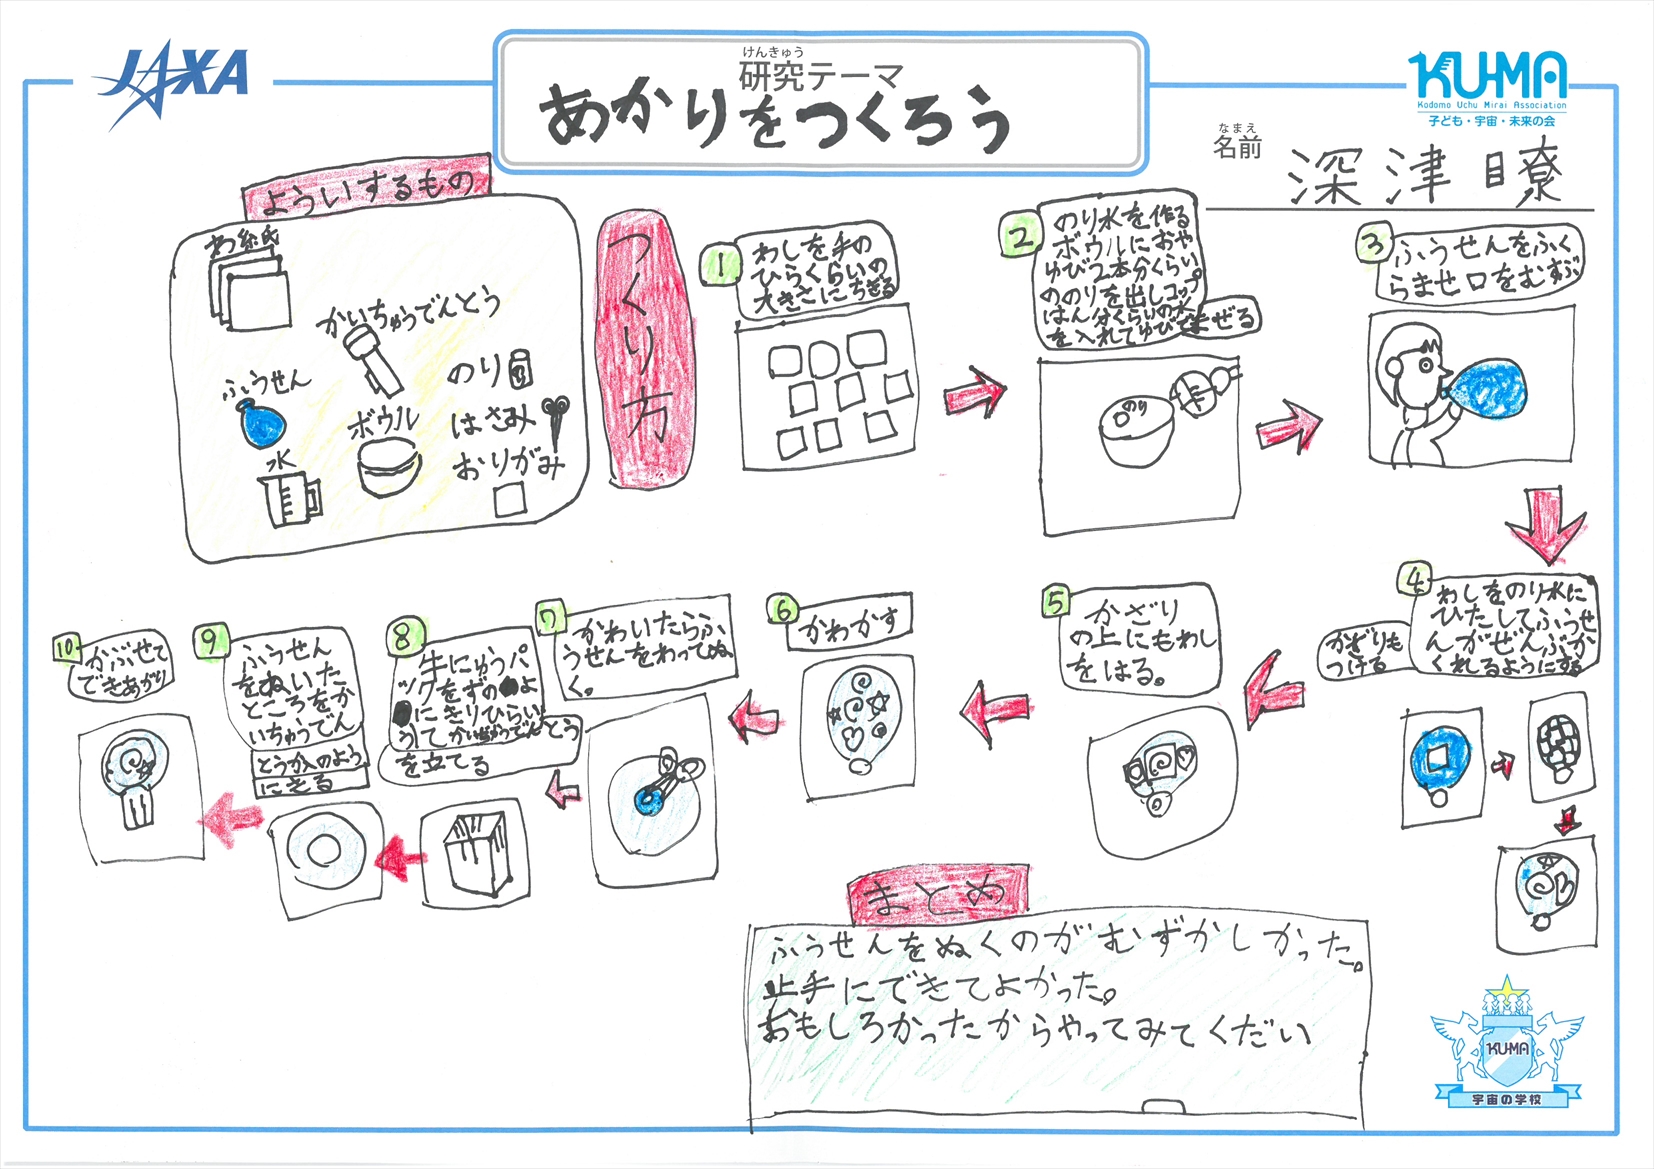 JAXA
けんきゅう
研究テーマ
あかりをつくろう
KU-MA
Kodomo Uchu Mirai Association
子ども・宇宙・未来の会
なまえ
名前
深津 瞭
よういするもの
わ紙
かいちゅうでんとう
のり
ふうせん
ボウル
はさみ
水
おりがみ
つくり方
1
わしを手の
ひらくらいの
大きさにちぎる
2
のり水を作る
ボウルにおや
ゆび2本分くらい
ののりを出しコップ
はん分くらいの水
を入れてゆびでまぜる
のり
3
ふうせんをふく
らませ口をむすぶ
4
わしをのり水に
ひたしてふうせ
んがぜんぶか
くれるようにする
かざりも
つける
5
かざり
の上にもわし
をはる。
6
かわかす
7
かわいたらふ
うせんをわってぬ
く。
8
牛にゅうパ
ックをずのよ
うにきりひらい
てかいちゅうでんとう
を立てる
9
ふうせん
をぬいた
ところをか
いちゅうでん
とうが入のよう
にきる
10
かぶせて
できあがり
まとめ
ふうせんをぬくのがむずかしかった。
上手にできてよかった。
おもしろかったからやってみてくだい
KU-MA
宇宙の学校